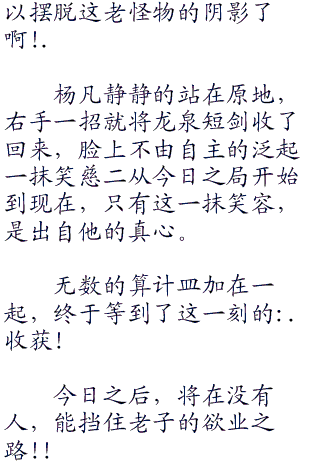 以摆脱这老怪物的阴影了
啊!.
杨凡静静的站在原地，
右手一招就将龙泉短剑收了
回来，脸上不由自主的泛起
一抹笑慈二从今日之局开始
到现在，只有这一抹笑容，
是出自他的真心。
无数的算计皿加在一
起，终于等到了这一刻的:.
收获!
今日之后，将在没有
人，能挡住老子的欲业之
路!!